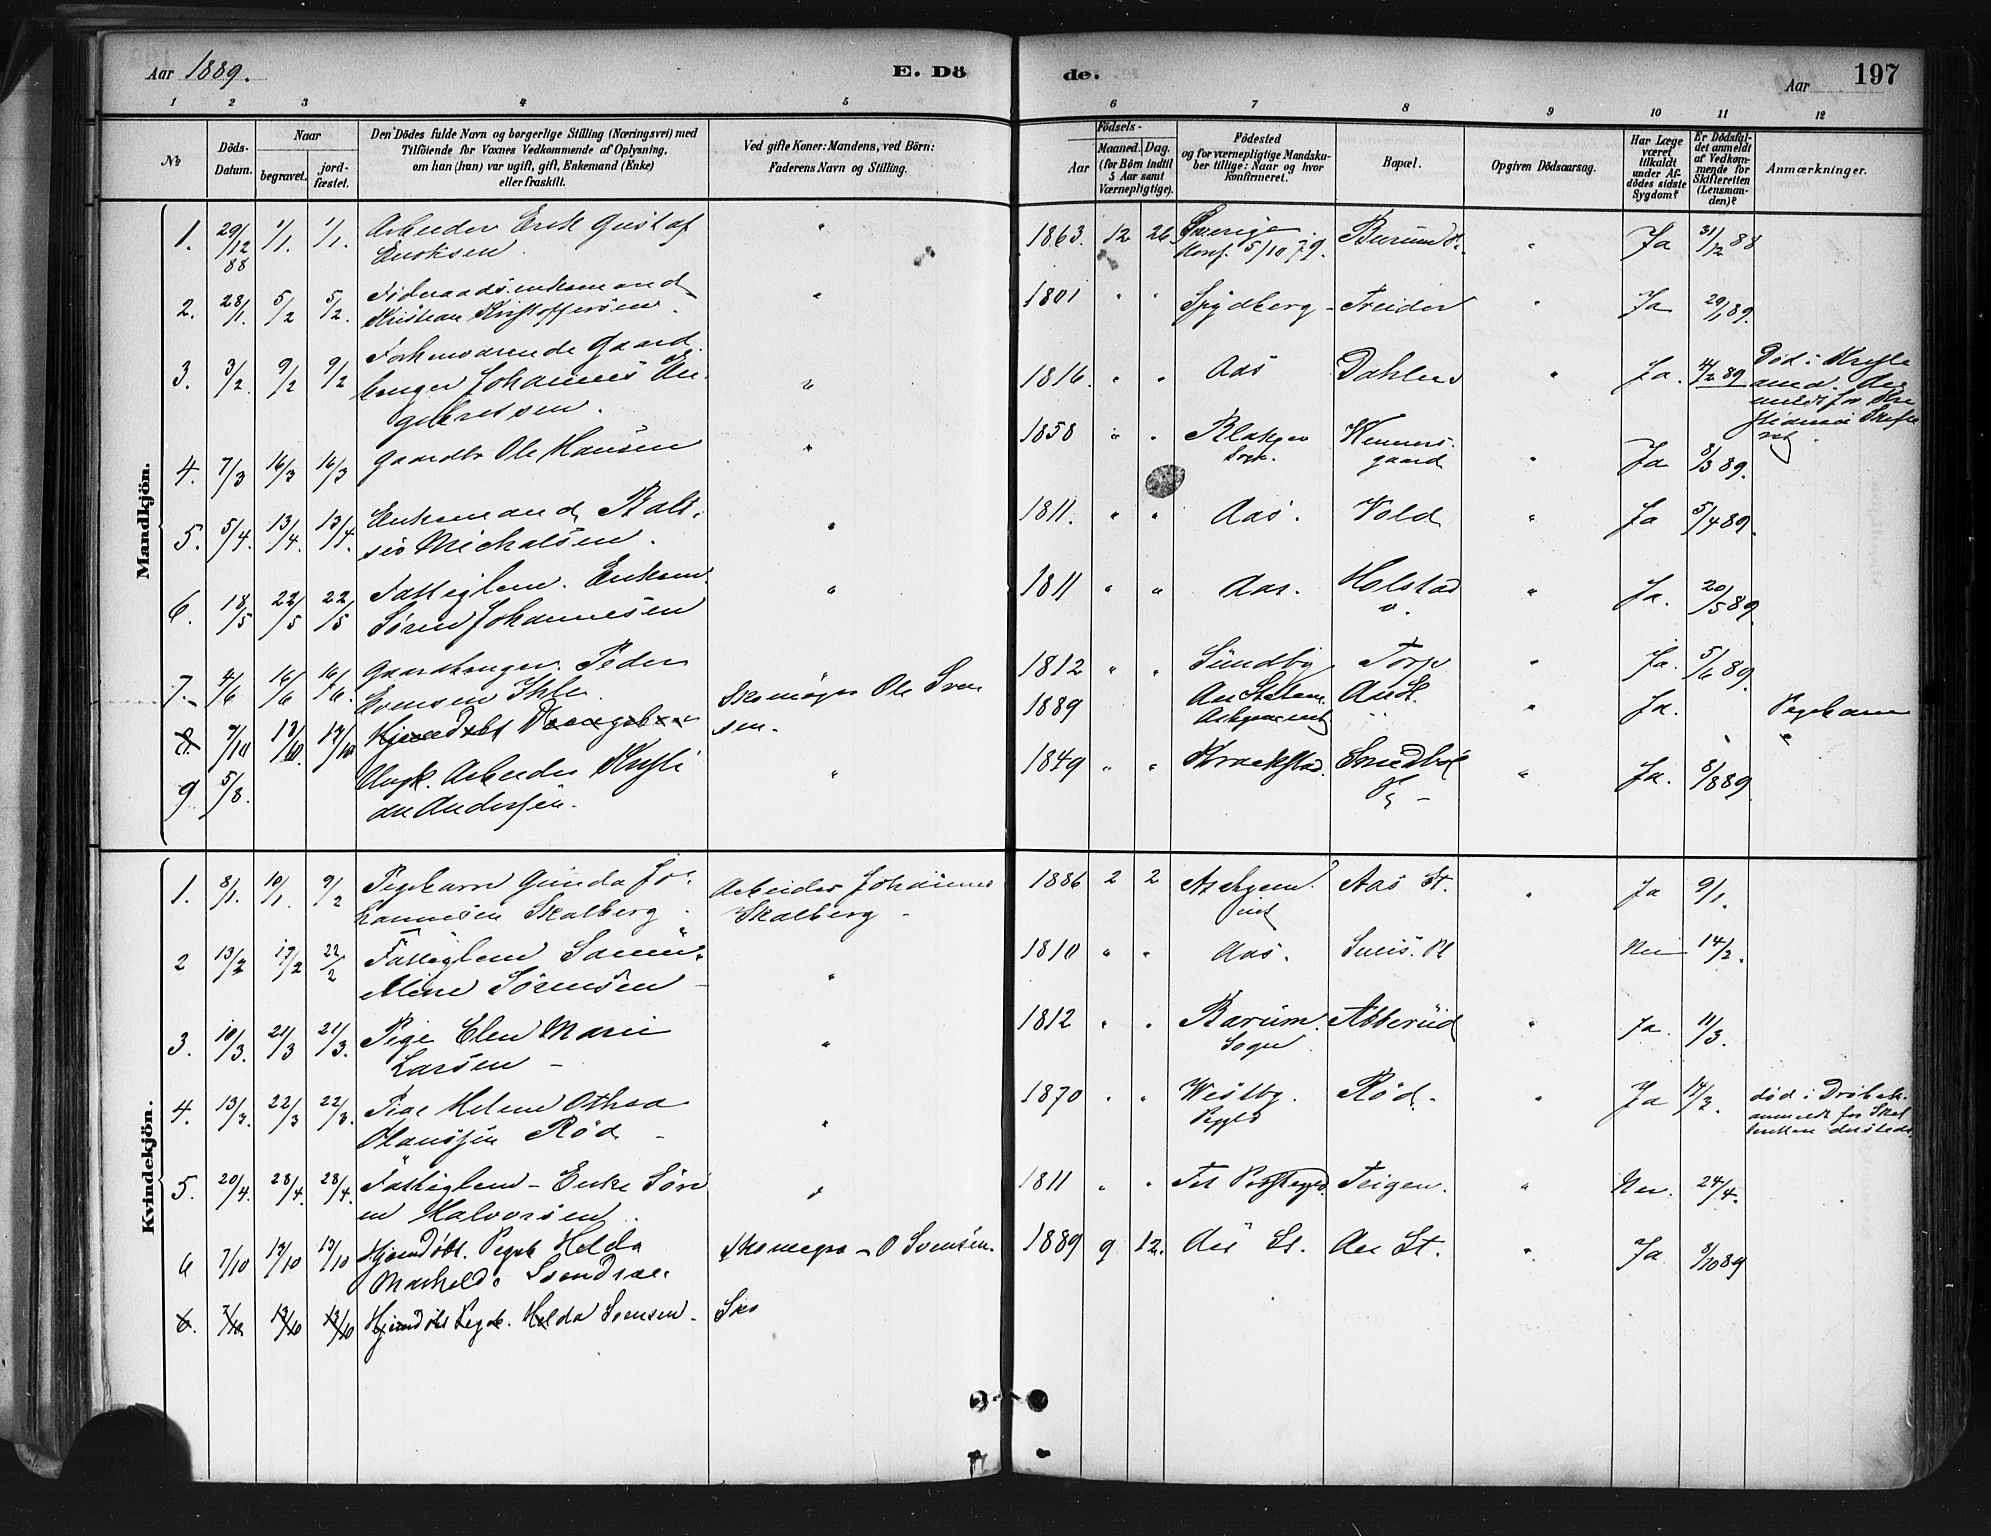 Aar 1889.
E. Dö
de.
Aar
197
1 2 3 4 5
6 7 8 9 10 11 12
No
Döds-
Datum.
Naar
begravet.
jord-
fæstet.
Den Dödes fulde Navn og borgerlige Stilling (Næringsvei) med
Tilföiende for Voxnes Vedkommende af Oplysning,
om han (hun) var ugift, gift, Enkemand (Enke)
eller fraskilt.
Ved gifte Koner: Mandens, ved Börn:
Faderens Navn og Stilling.
Födsels-
Aar
Maaned. Dag.
(for Börn indtil
5 Aar samt
Værnepligtige).
Födested
og for værnepligtige Mandska-
ber tillige: Naar og hvor
konfirmeret.
Bopæl.
Opgiven Dödsaarsag.
Har Læge
været
tilkaldt
under Af-
dödes sidste
Sygdom?
Er Dödsfal-
det anmeldt
af Vedkom-
mende for
Skifteretten
(Lensman-
den)?
Anmærkninger.
Mandkjön.
1. 29/12 88 1/1. 1/1. Arbeider Erik Gustaf
Eriksen
" 1863. 12 26. Sverige
Konf. 5/10 79. " Ja 31/12 88
2. 28/1. 5/2 5/2. Föderaadsenkemand
Kristian Kristoffersen.
" 1801 " " Spydberg Treider " Ja 29/1 89.
3. 3/2. 9/2 9/2 Forhenværende Gaard
bruger Johannes En
gebretsen.
" 1816. " " Aas Dahler " Ja. 4/2 89
Död i Kristi
ania. An
meldt for Kri
stiania Skifte
ret.
4. 7/3 16/3 16/3 Gaardbr Ole Hansen
" 1858 " " Blakjer
Sogn.
gaard
" Ja 8/3 89.
5. 5/4. 13/4. 13/4. Enkemand Balt
ser Michalsen.
" 1811. " " Aas. Vold " Ja 5/4 89.
6. 18/5 22/5 22/5 Fattiglem. Enkem.
Sören Johannesen
" 1811 " " Aas. Holstad
" Ja. 20/5 89.
7. 4/6 16/6 16/6. Gaardbruger. Peder
Evensen Ihle.
1812 " " Sundby Torp " Ja. 5/6 89.
8. 7/10 13/10. 13/10 Hjemdöbt Drengebarn
Skomager Ole Sven
sen.
1889 Aas St. " Ja. Pigebarn
9 5/8. Ungk. Arbeider Kristi
an Andersen.
" 1849 " " Kraakstad. " Ja. 8/8 89.
Kvindekjön.
1. 8/1. 10/1. 9/2 Pigebarn Gunda Jo-
hannesen Skalberg.
Arbeider Johannes
Skalberg
1886 2 2 Aas St. " Ja 9/1.
2 13/2 19/2 22/2 Fattiglem
Aline Sörensen
" 1810 " " Aas. Nei 14/2.
3. 10/3. 21/3 21/3. Pige Elen Marie
Larsen
" 1812 " " Bærum.
Sogn
Abberud " Ja. 11/3.
4. 13/3. 22/3 22/3. Pige Helene Othea
Hansen Röd
" 1870 " " Westby.
Pgjld
Röd. " Ja 14/3.
död i Dröbak.
anmeldt for Skif
teretten dersteds.
5. 20/4. 28/4. 28/4. Fattiglem - Enke Söri
ne Halvorsen.
" 1811 " " Fet Prestegjld. Teigen. " Nei. 24/4.
6 7/10 13/10 13/10 Hjemdöbt. Pigeb Helda
Mathilde
Skomager O Svensen.
1889 9 12. Aas St. Aas St. " Ja. 9/10 89
6. 7/10 13/10 13/10 Hjemdöbt Pigeb. Helda Svensen. Sko